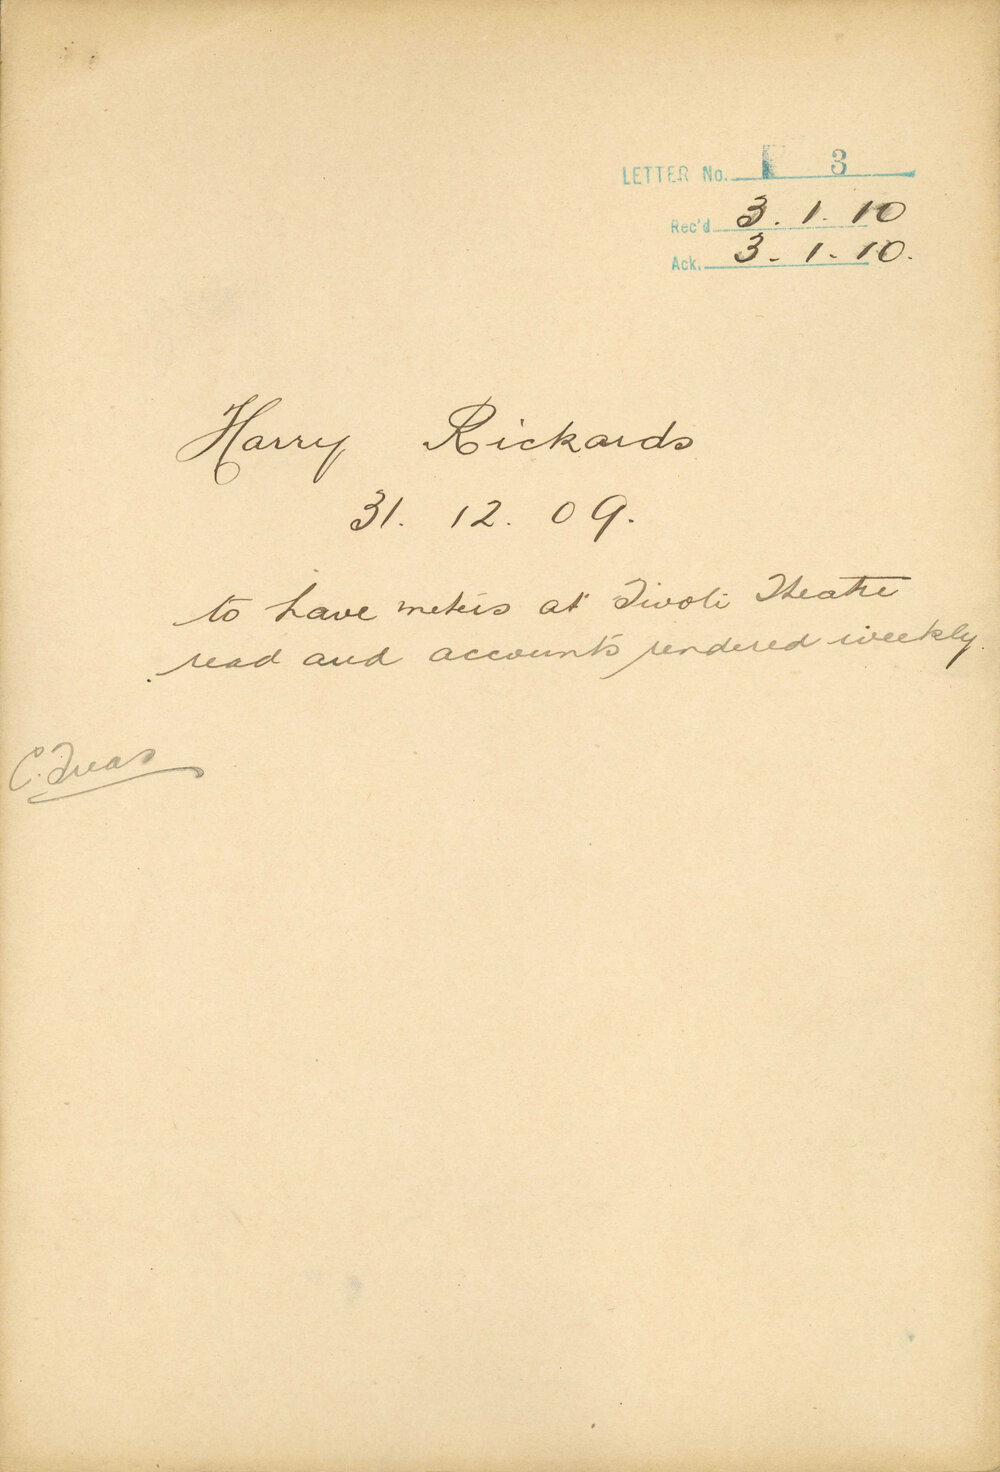 LETTER No. 3
Rec'd 3.1.10
Ack. 3.1.10.
Harry Rickards
31. 12. 09.
to have meters at Tivoli Theatre
read and accounts rendered weekly.
C. Treas